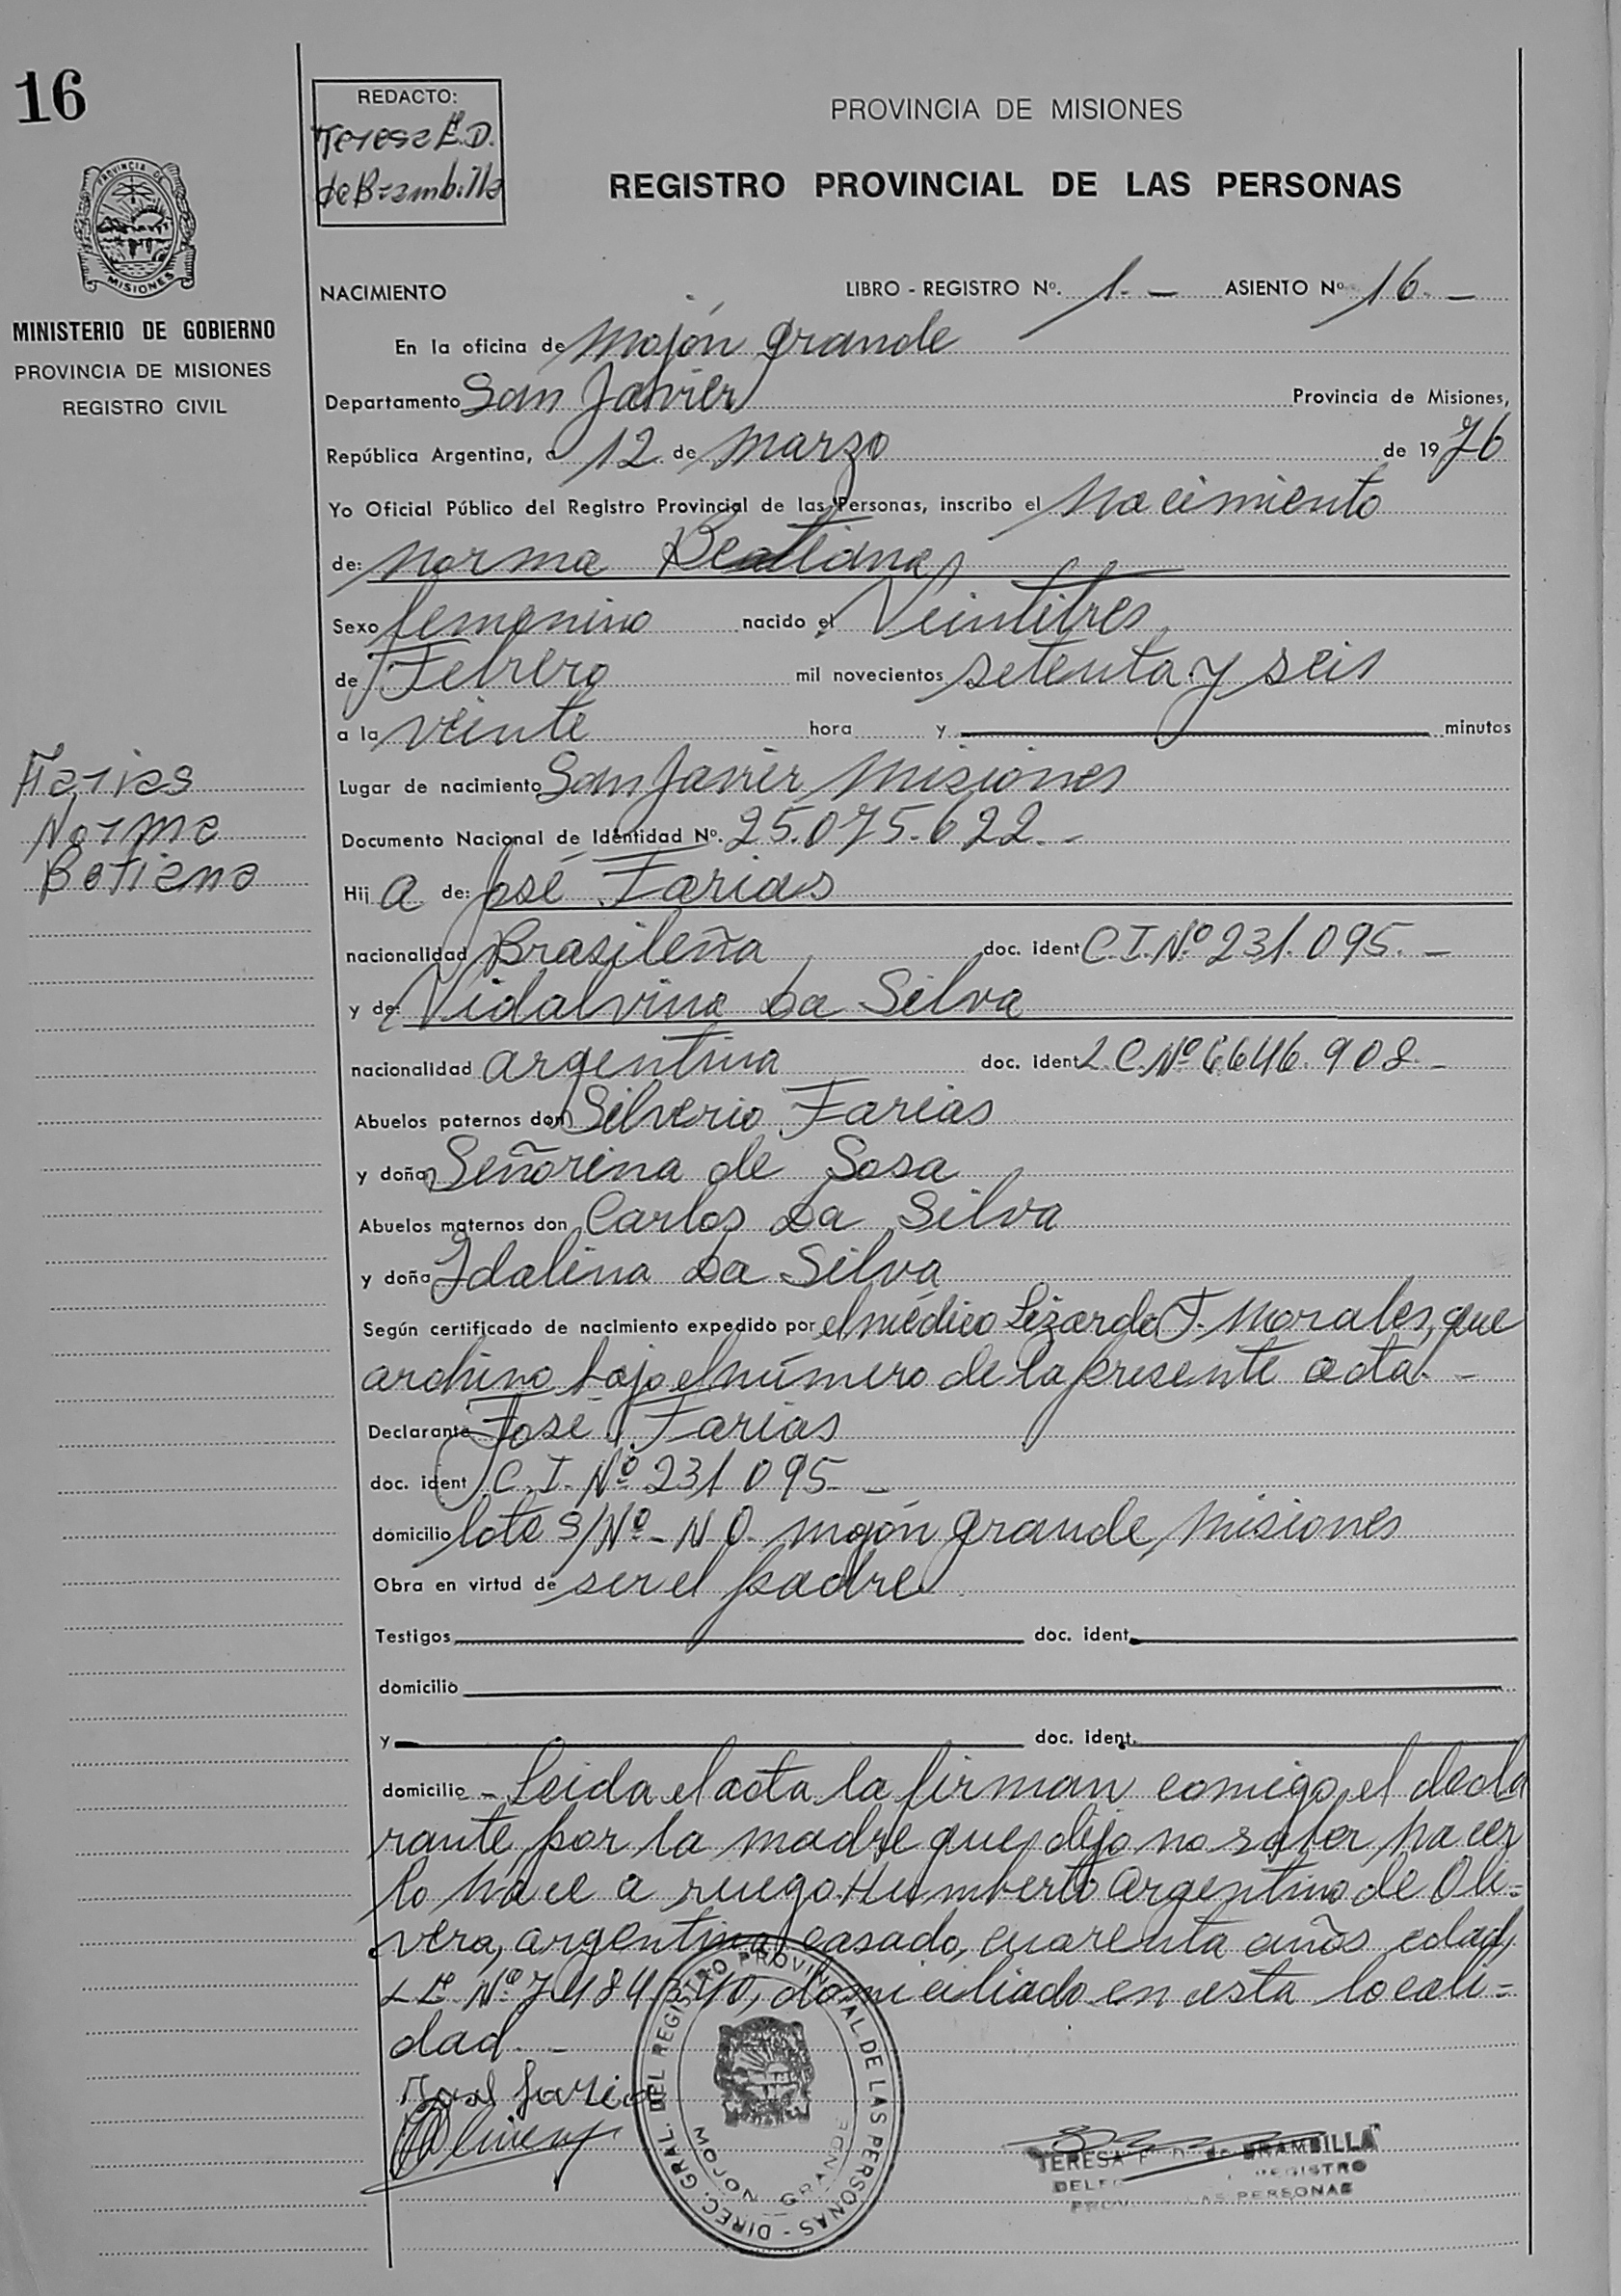 16
REDACTO:
Teresa E. D.
de Brambilla
PROVINCIA DE MISIONES
REGISTRO PROVINCIAL DE LAS PERSONAS
PROVINCIA DE
MISIONES
MINISTERIO DE GOBIERNO
PROVINCIA DE MISIONES
REGISTRO CIVIL
NACIMIENTO LIBRO - REGISTRO Nº. 1.- ASIENTO Nº 16.-
En la oficina de Mojón grande
Departamento San Javier Provincia de Misiones,
República Argentina, a 12 de marzo de 1976
Yo Oficial Público del Registro Provincial de las Personas, inscribo el Nacimiento
de: Norma
Sexo femenino nacido el Veintitres
de Febrero mil novecientos setenta y seis
a la veinte hora y minutos
Lugar de nacimiento San Javier, Misiones
Documento Nacional de Identidad Nº. 25.075.622.-
Farias
Norma
Betiana
Hij a de: José Farias
nacionalidad Brasileña doc. ident C.I.Nº 231.095.-
y de: Vidalvina Da Silva
nacionalidad argentina doc. ident L.C.Nº 6646.908-
Abuelos paternos don Silverio Farias
y doña Señorina de Sosa
Abuelos maternos don Carlos Da Silva
y doña Idalina Da Silva
Según certificado de nacimiento expedido por el médico Lizardo F. Morales, que
archivo bajo el número de la presente acta.-
Declarante José Farias
doc. ident C.I.Nº 231095-
domicilio lote S/Nº-N.O. mojón grande, Misiones
Obra en virtud de ser el padre
Testigos doc. ident.
domicilio
y doc. ident.
domicilio - Leida el acta la firman comigo, el decla
rante, por la madre que dijo no saber hacer
lo hace a ruego Humberto Argentino de Oli=
vera, argentino, casado, cuarenta años edad,
L E Nº 7.484.340, domiciliado en esta locali=
dad.-
José Faria
DIREC. GRAL. DEL REGISTRO PROVINCIAL DE LAS PERSONAS -
MOJON GRANDE
TERESA E. D. de BRAMBILLA
REGISTRO
LAS PERSONAS